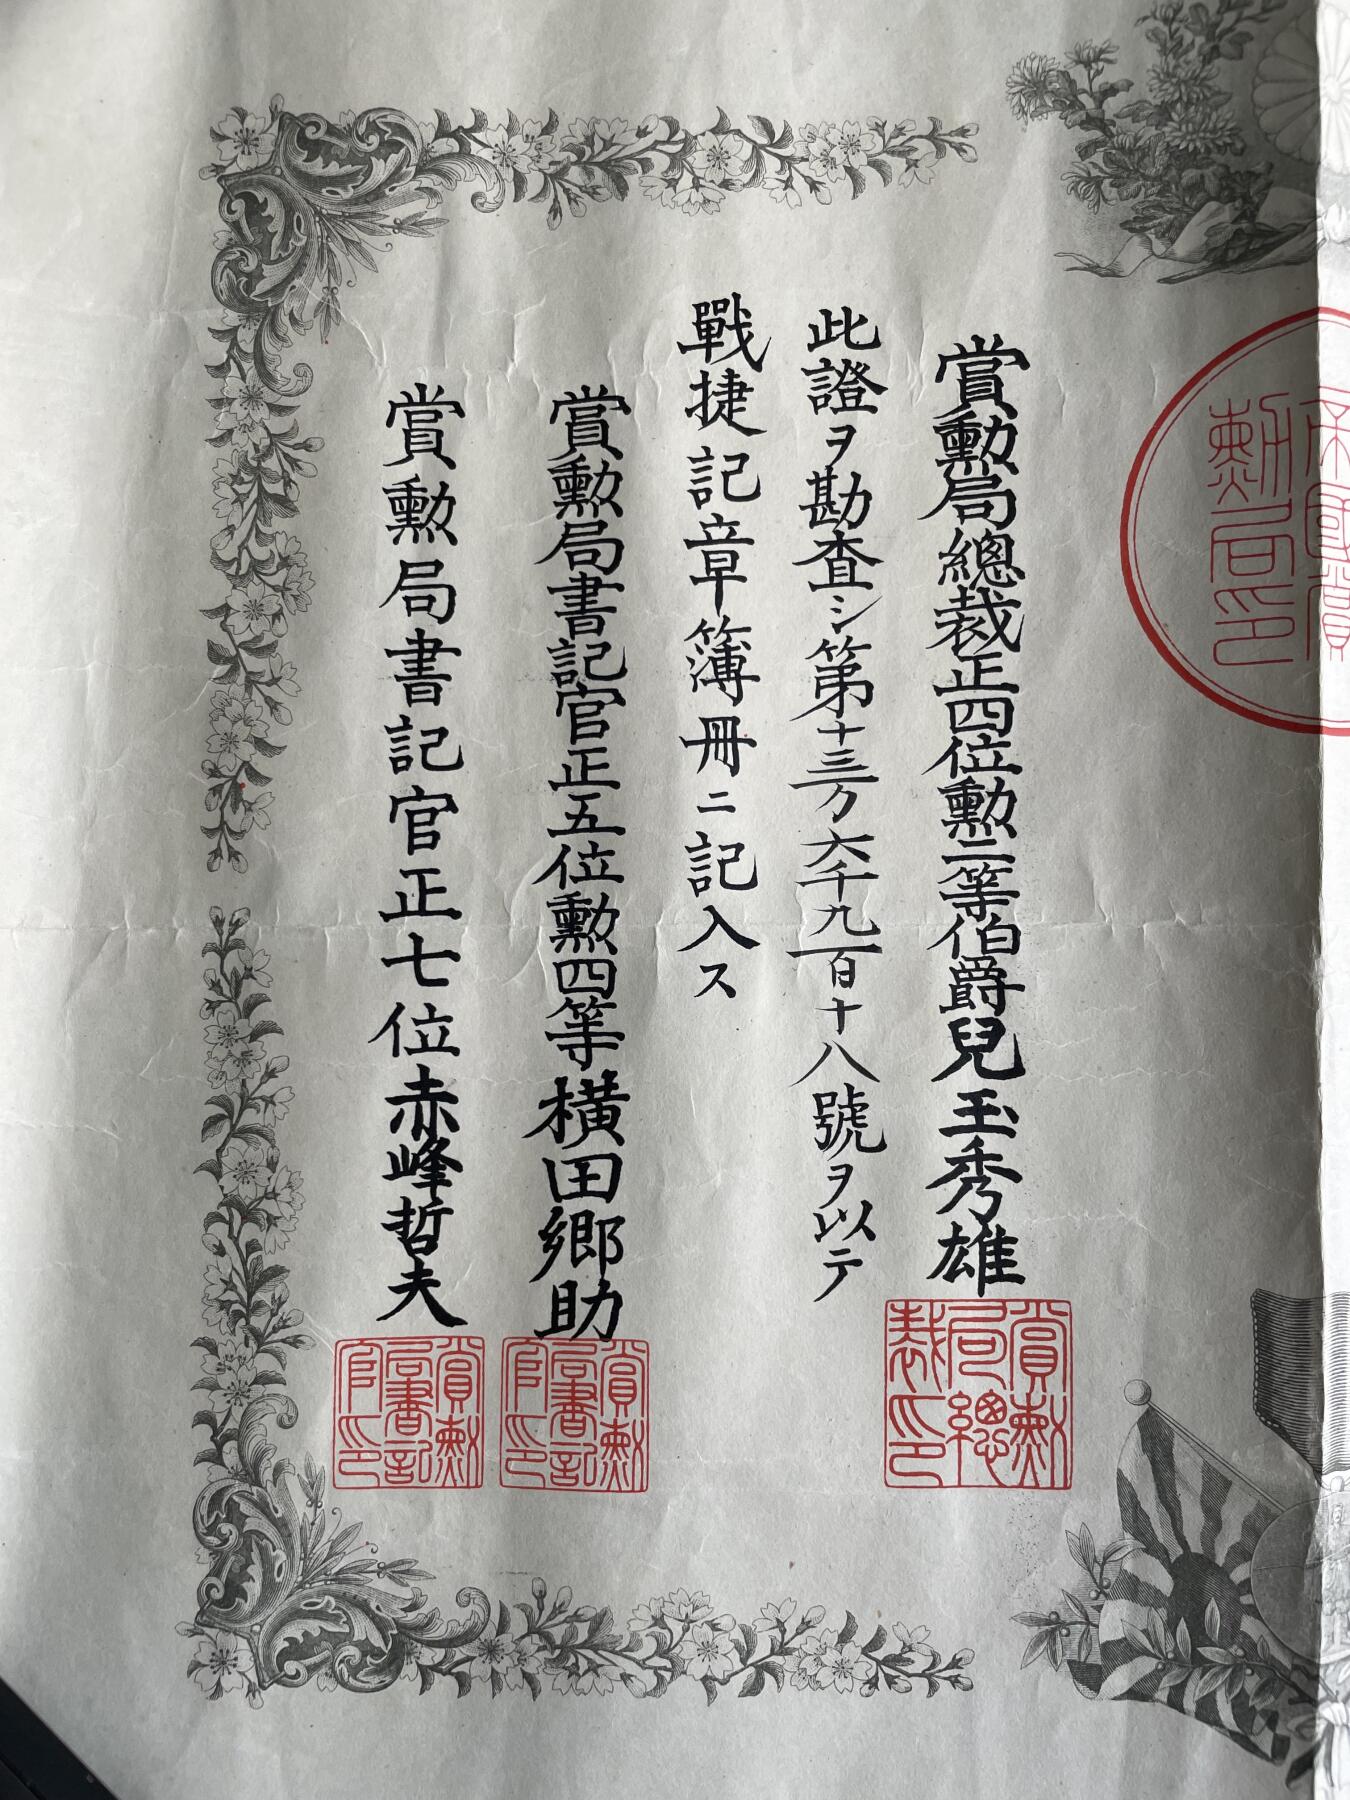 賞勲局總裁正四位勲二等伯爵兒玉秀雄
此證ヲ勘査シ第十三万六千九百十八號ヲ以テ
戰捷記章簿冊ニ記入ス
賞勲局書記官正五位勲四等横田郷助
賞勲局書記官正七位赤峰哲夫
帝國賞
勲局印
賞勲
局總
裁印
賞勲
局書記
官印
賞勲
局書記
官印